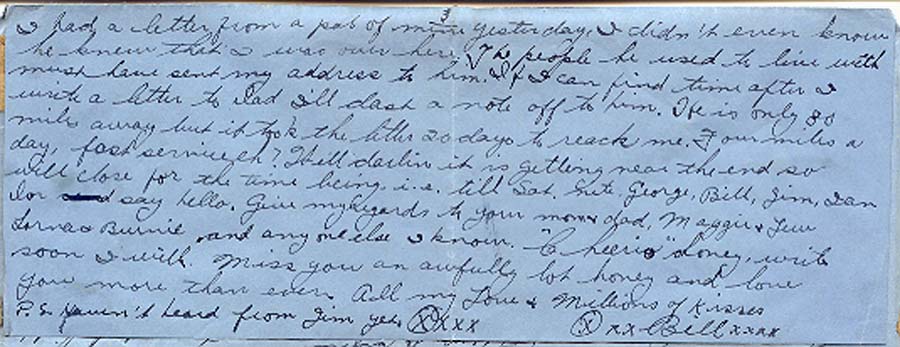 3
I had a letter from a pal of mine yesterday, I didn't even know
he knew that I was over here. The people he used to live with
must have sent my address to him. If I can find time after I
write a letter to Dad I'll dash a note off to him. He is only 80
miles away but it took the letter 20 days to reach me. Four miles a
day, fast service, eh? Well darlin it is getting near the end so
will close for the time being i.e. till Sat. nite. George, Bill, Jim, Ian
Ior say hello. Give my regards to your mom & dad, Maggie & Lew
Lorna & Burnie and any one else I know. "Cheerio" honey, write
soon I will. Miss you an awfully lot honey and love
you more than ever. All my Love & Millions of Kisses
P.S. Haven't heard from Jim yet. XXXX X XX Bill XXXX